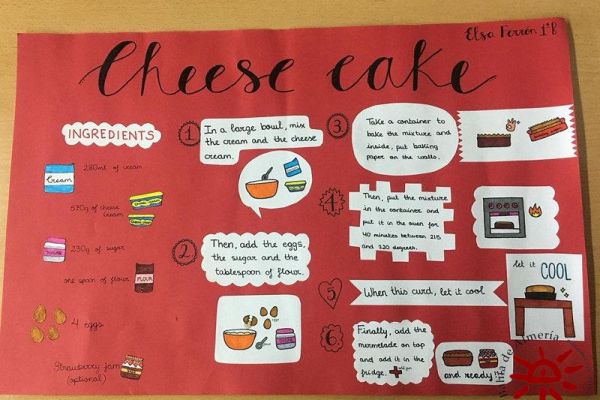 Elsa Ferrón 1ºB
Cheese cake
INGREDIENTS
280ml of cream
Cream
570g of cheese
cream
230g of sugar
one spoon of flour
FLOUR
4 eggs
Strawberry jam
(optional)
1
In a large bowl, mix
the cream and the cheese
cream.
2
Then, add the eggs,
the sugar and the
tablespoon of flour.
3
Take a container to
bake the mixture and
inside, put baking
paper on the walls.
4
Then, put the mixture
in the container and
put it in the oven for
40 minutes between 215
and 220 degrees.
5
When this curd, let it cool
let it
COOL
6
Finally, add the
mermelade on top
and add it in the
fridge.
and ready!
de Almería